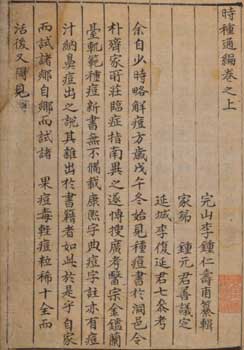 時種通編卷之上
完山李鍾仁壽甫纂輯
家弟 鍾元君善議定
延城李復延君七參考
余自少時略解痘方歲戊午冬始見種痘書於邑令
朴齊家所莊臨症指南異之遂博搜廣考醫宗金鑑蘭
臺軌範種痘新書無不備載康熙字典痘字註亦有痘
汁納鼻痘出之說其雜出於書籍者如此於是乎自家
而試諸鄉自鄉而試諸 果痘毒輕痘粒稀十全而
活後又爾見